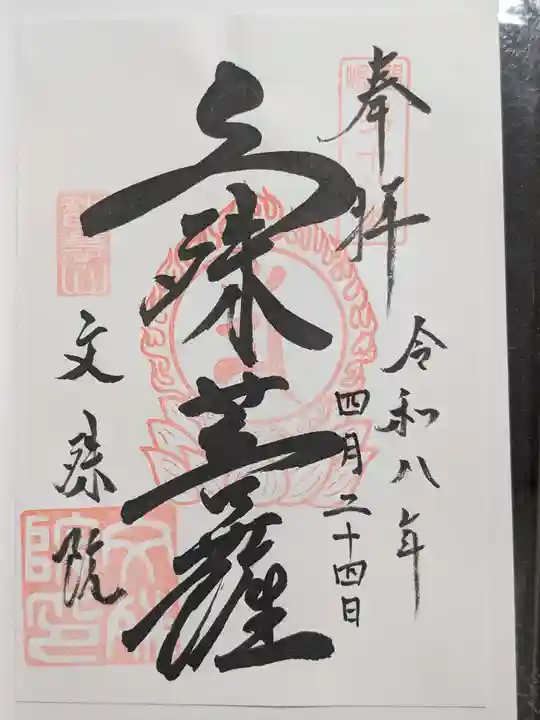 奉拝
令和八年
四月二十四日
文殊菩薩
文殊院
文殊院印